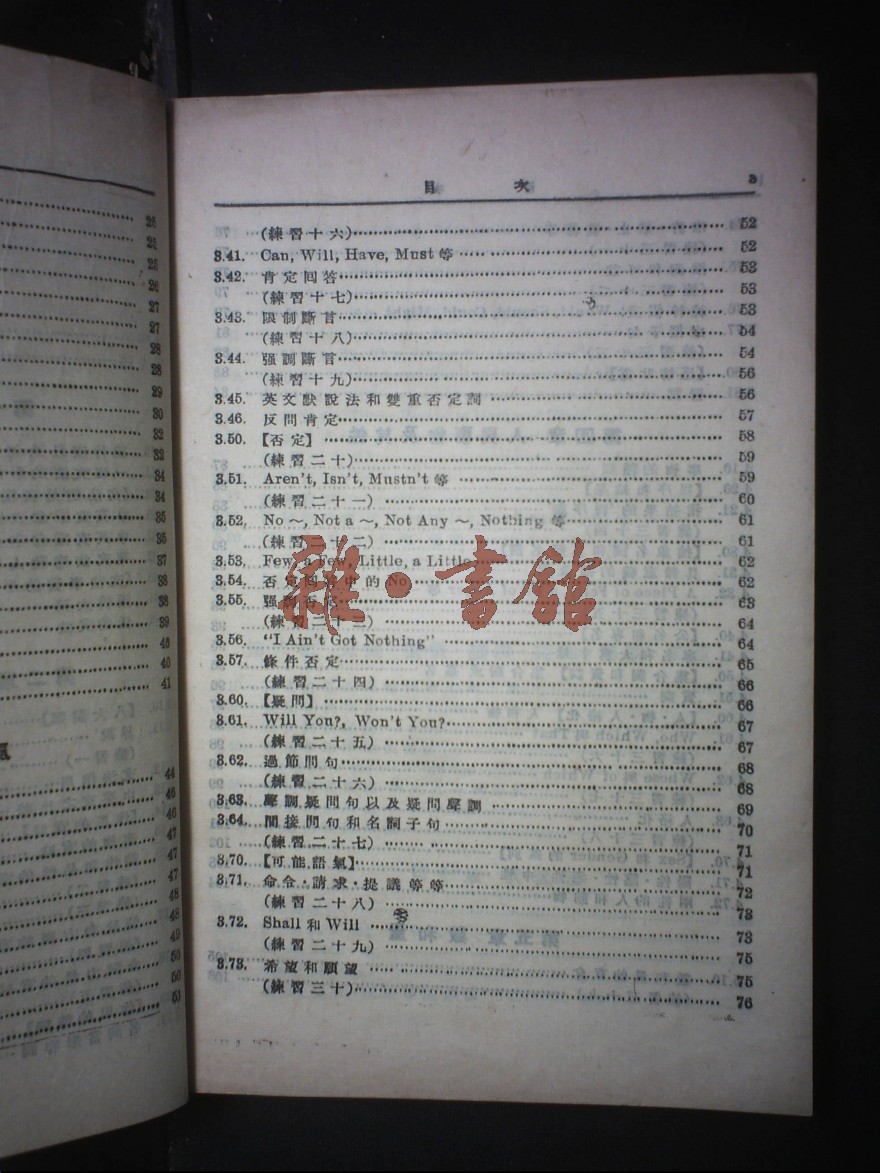 26
25
25
26
27
27
28
28
29
30
32
32
34
34
35
36
37
38
38
39
40
40
41
44
46
46
47
47
48
48
49
50
50
51
目 次
(練習十六) 52
3.41. Can, Will, Have, Must 等 52
3.42. 肯定回答 53
(練習十七) 53
3.43. 限制斷言 53
(練習十八) 54
3.44. 强調斷言 54
(練習十九) 56
3.45. 英文默說法和雙重否定詞 56
3.46. 反問肯定 57
3.50. 【否定】 58
(練習二十) 59
3.51. Aren't, Isn't, Mustn't 等 59
(練習二十一) 60
3.52. No ～, Not a ～, Not Any ～, Nothing 等 61
(練習二十二) 61
3.53. Few, a Few, Little, a Little 62
3.54. 否定回答中的 No 62
3.55. 强調否定 63
(練習二十三) 64
3.56. "I Ain't Got Nothing" 64
3.57. 條件否定 65
(練習二十四) 66
3.60. 【疑問】 66
3.61. Will You?, Won't You? 67
(練習二十五) 67
3.62. 過節問句 68
(練習二十六) 68
3.63. 聲調疑問句以及疑問聲調 69
3.64. 間接問句和名詞子句 70
(練習二十七) 71
3.70. 【可能語氣】 71
3.71. 命令·請求·提議等等 72
(練習二十八) 73
3.72. Shall 和 Will 73
(練習二十九) 75
3.73. 希望和願望 75
(練習三十) 76
雜·書館